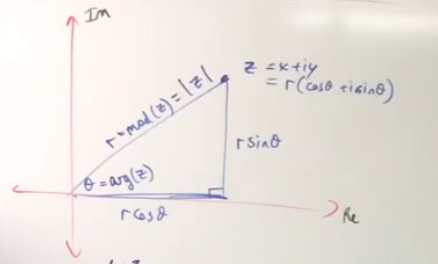 Im
z = x+iy
= r(cosθ + isinθ)
r = mod(z) = |z|
r sinθ
θ = arg(z)
r cosθ
Re